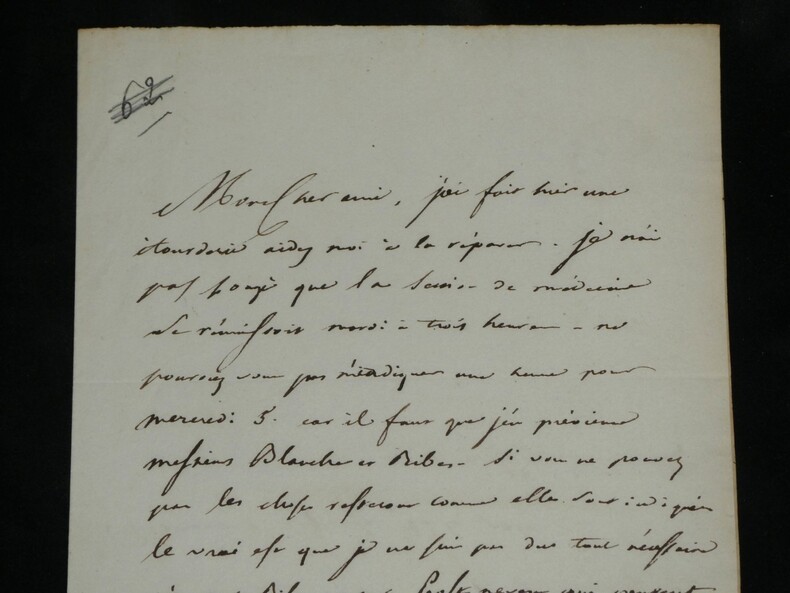 62
Mon Cher ami, j'ai fait hier une
étourderie aidez moi à la réparer. je n'ai
pas songé que la de médecine
se réunissoit mardi à trois heures - ne
pourriez vous pas m'indiquer une heure pour
mercredi 5. car il faut que j'en prévienne
messieurs Blanche et Ribes. Si vous ne pouvez
pas les choses resteront comme elles sont indiquées
le vrai est que je ne suis pas du tout nécessaire